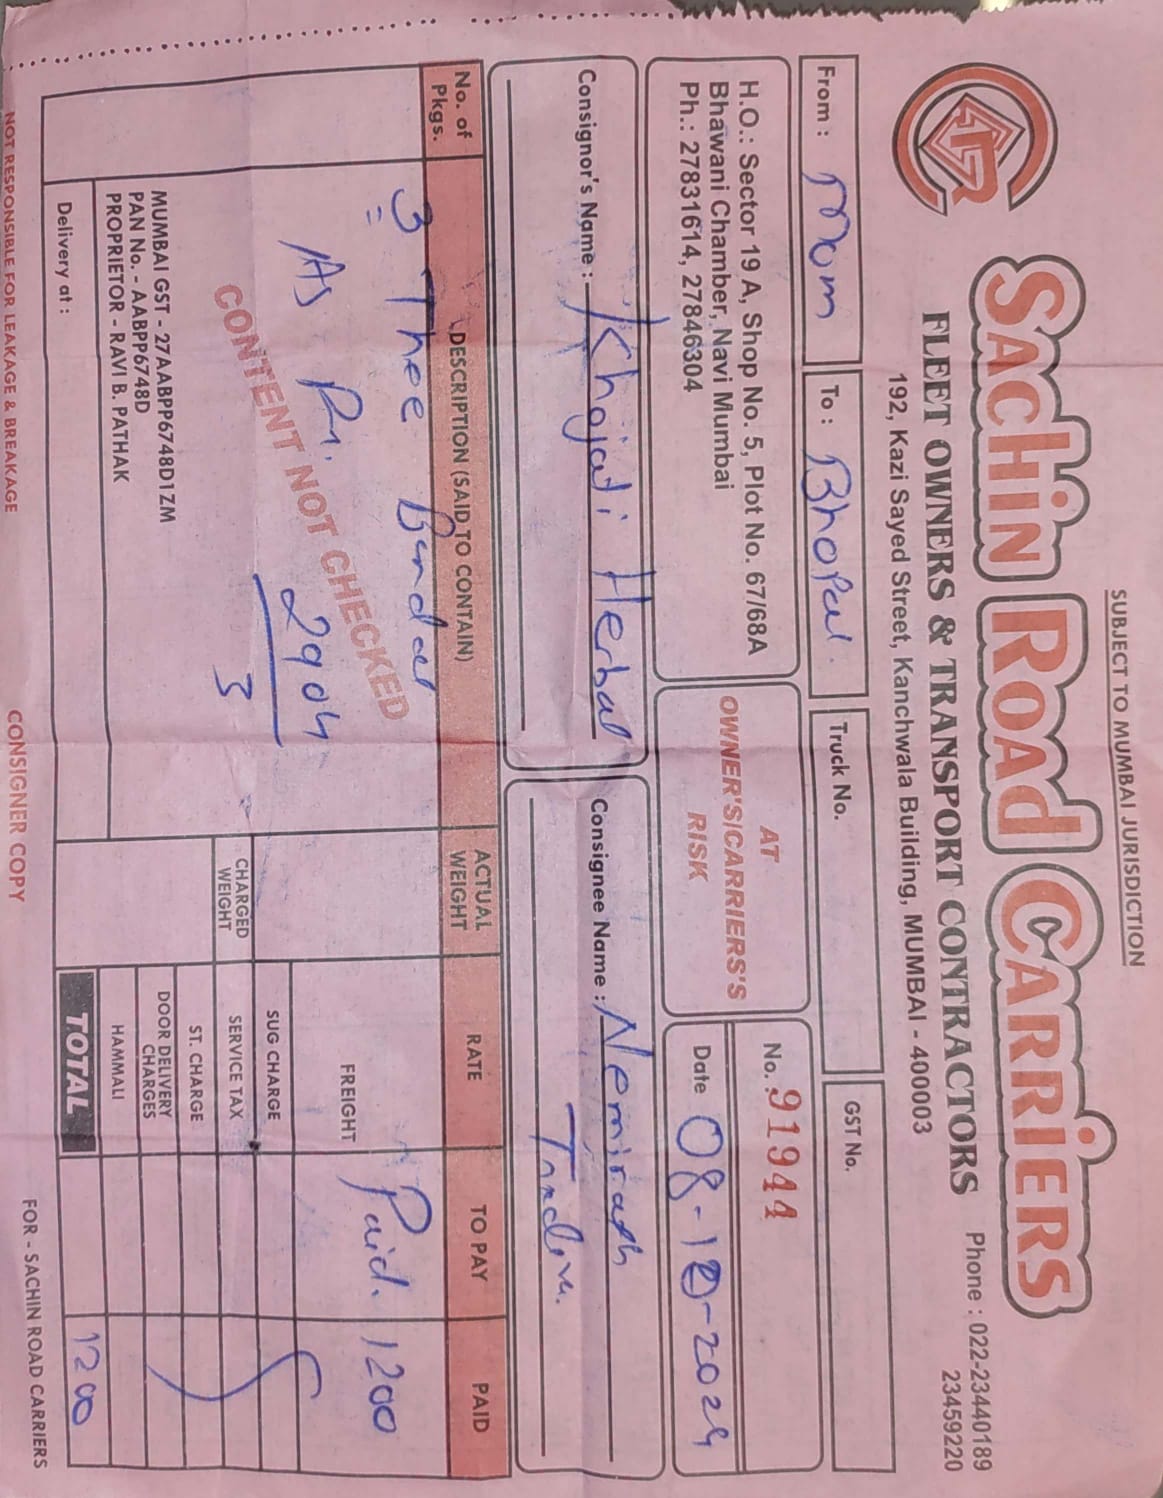 SUBJECT TO MUMBAI JURISDICTION
SACHIN ROAD CARRIERS
FLEET OWNERS & TRANSPORT CONTRACTORS
Phone : 022-23440189
23459220
192, Kazi Sayed Street, Kanchwala Building, MUMBAI - 400003
From : Mum
To : Bhopal.
Truck No.
GST No.
H.O.: Sector 19 A, Shop No. 5, Plot No. 67/68A
Bhawani Chamber, Navi Mumbai
Ph.: 27831614, 27846304
AT
OWNER'S/CARRIERS'S
RISK
No. : 91944
Date 08-10-2024
Consignor's Name : Khojati Herbal
Consignee Name : Neminath
No. of Pkgs.
DESCRIPTION (SAID TO CONTAIN)
ACTUAL WEIGHT
RATE
TO PAY
PAID
3 Thee Bundal
As
2904
3
CONTENT NOT CHECKED
FREIGHT
Paid. 1200
SUG CHARGE
CHARGED WEIGHT
SERVICE TAX
ST. CHARGE
DOOR DELIVERY CHARGES
HAMMALI
TOTAL
1200
MUMBAI GST - 27AABPP6748D1ZM
PAN No. - AABPP6748D
PROPRIETOR - RAVI B. PATHAK
Delivery at :
NOT RESPONSIBLE FOR LEAKAGE & BREAKAGE
CONSIGNER COPY
FOR - SACHIN ROAD CARRIERS